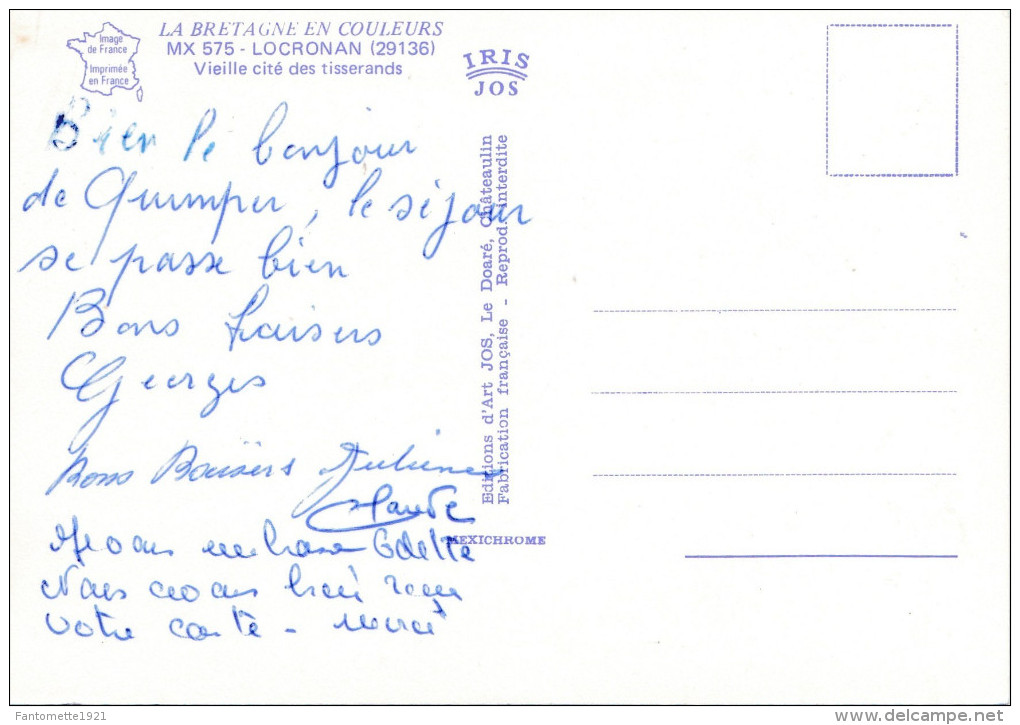 Image
de France
Imprimée
en France
LA BRETAGNE EN COULEURS
MX 575 - LOCRONAN (29136)
Vieille cité des tisserands
IRIS
JOS
Bien le bonjour
de Quimper, le séjour
se passe bien
Bons baisers
Georges
Bons Baisers
Claude
embrasse Odette
Nous avons bien reçu
votre carte - merci
Editions d'Art JOS, Le Doaré, Châteaulin
Fabrication française - Reprod. interdite
MEXICHROME
Fantomette1921
www.delcampe.net